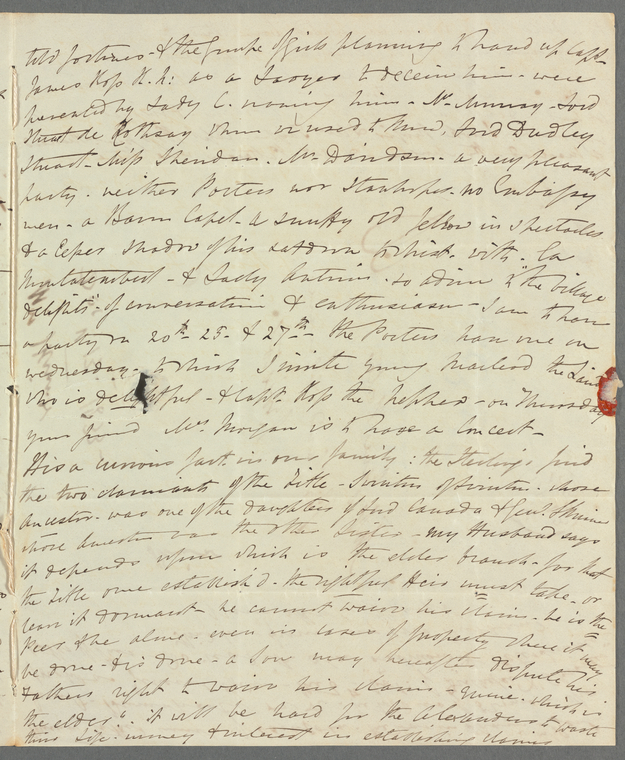 told fortunes - & the Groupe of girls planning to hand up Capt
James Ross R.N: as a Sawyer to deceive him - were
prevented by Lady C. warning him - Mr Murray - Lord
Stuart de Rothsay whom we used to know, Lord Dudley
Stuart - Miss Sheridan. Mr Davidson - a very pleasant
party. neither Porters nor Stanhopes - no Embassy
men - a Baron Capel - a snuffy old fellow in spectacles
& a shadow of his sat down to whist. with - La
Montalembert - & Lady Antrim. so adieu to "the village
delights" of conversation & enthusiasm - I am to have
a party on 20th 25 - & 27th the Porters have one on
wednesday - to which I invite young Macleod the Laird
who is delightful - & Capt. Ross the nephew - on Thursday
your friend Mrs Morgan is to have a Concert -
It is a curious fact in our family: the Sterlings find
the two claimants of the Title - whose
ancestor - was one of the daughters of Lord Canada & Genl.
whose Ancestor was the other Sister - my Husband says
it depends upon which is the elder branch - for that
the Title once establish'd - the rightful Heir must take - or
leave it dormant - he cannot waive his claim - he is the
Peer & he alone - even in cases of property where it may
be done - & is done - a Son may hereafter dispute his
Fathers right to waive his claims - which is
the elder". it will be hard for the Alexanders to waste
time life - money & interest in establishing claims